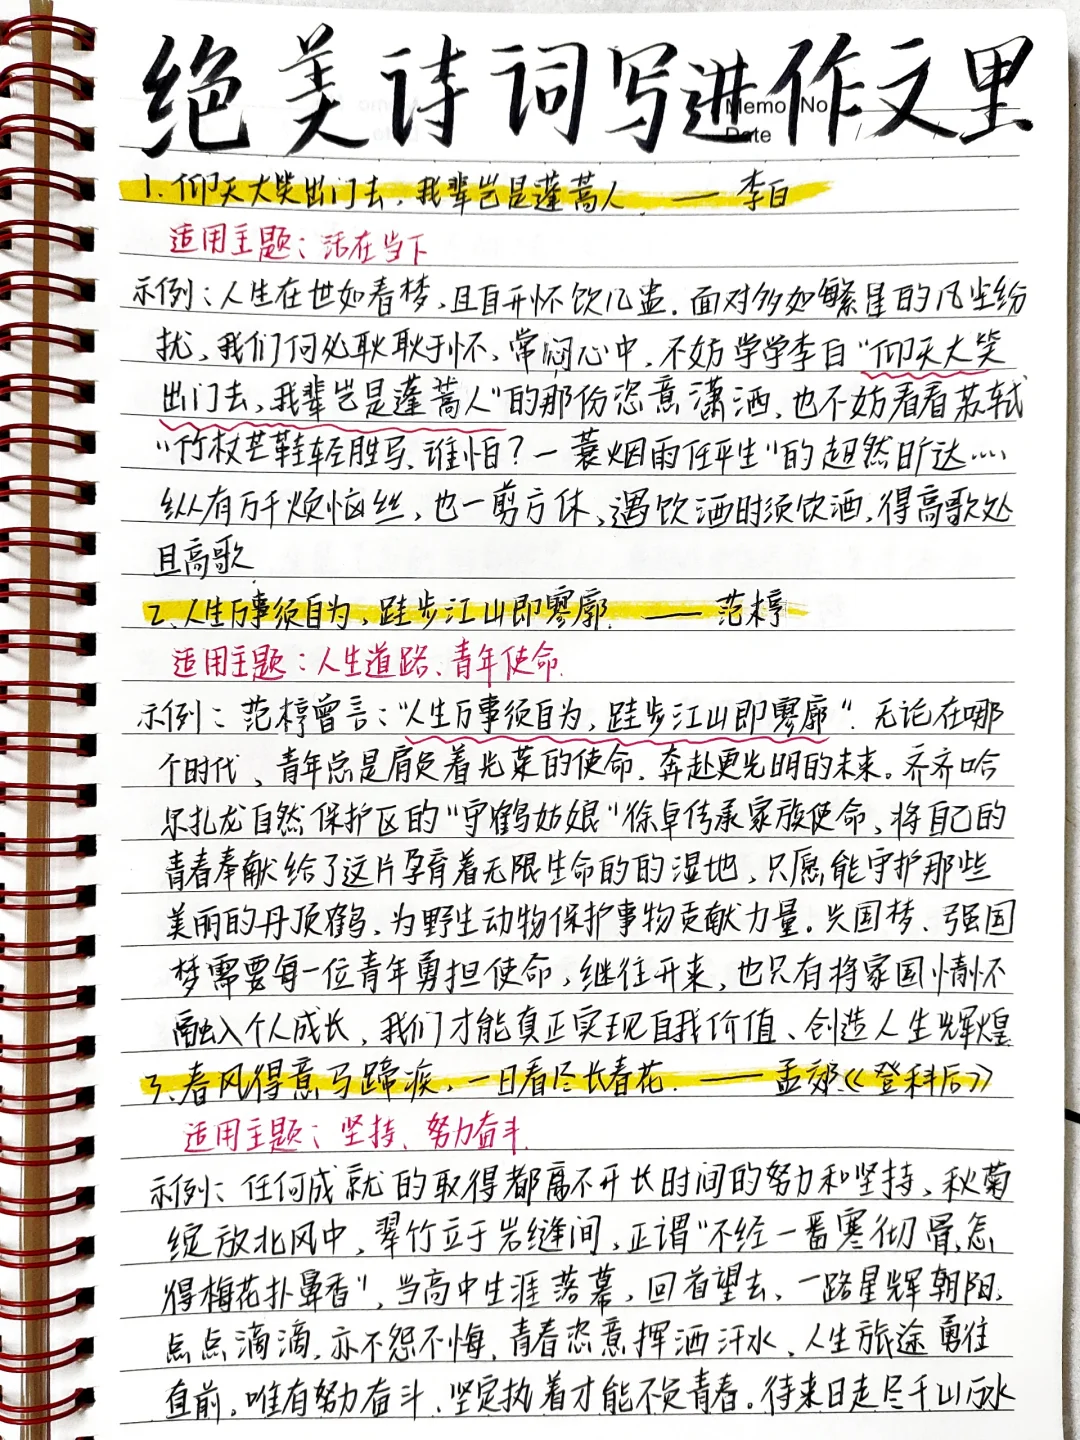 绝美诗词写进作文里
Memo No.
Date / /
1.仰天大笑出门去,我辈岂是蓬蒿人. —— 李白
适用主题:活在当下
示例:人生在世如春梦,且自开怀饮几盅.面对多如繁星的凡尘纷
扰,我们何处耿耿于怀,常闷心中,不妨学学李白“仰天大笑
出门去,我辈岂是蓬蒿人”的那份恣意潇洒,也不妨看看苏轼
“竹杖芒鞋轻胜马,谁怕?一蓑烟雨任平生”的超然旷达……
纵有万千烦恼丝,也一剪方休,遇饮酒时须饮酒,得高歌处
且高歌.
2、人生万事须自为,跬步江山即寥廓. —— 范梈
适用主题:人生道路、青年使命.
示例:范梈曾言:“人生万事须自为,跬步江山即寥廓“.无论在哪
个时代,青年总是肩负着光荣的使命,奔赴更光明的未来。齐齐哈
尔扎龙自然保护区的“守鹤姑娘“徐卓传承家族使命,将自己的
青春奉献给了这片孕育着无限生命的的湿地,只愿能守护那些
美丽的丹顶鹤,为野生动物保护事物贡献力量。兴国梦、强国
梦需要每一位青年勇担使命,继往开来,也只有将家国情怀
融入个人成长,我们才能真正实现自我价值、创造人生辉煌
3、春风得意马蹄疾,一日看尽长春花. —— 孟郊《登科后》
适用主题:坚持、努力奋斗.
示例:任何成就的取得都离不开长时间的努力和坚持,秋菊
绽放北风中,翠竹立于岩缝间,正谓“不经一番寒彻骨,怎
得梅花扑鼻香“,当高中生涯落幕,回首望去,一路星辉朝阳,
点点滴滴,亦不怨不悔,青春恣意挥洒汗水,人生旅途勇往
直前,唯有努力奋斗、坚定执着才能不负青春。待来日走尽千山万水